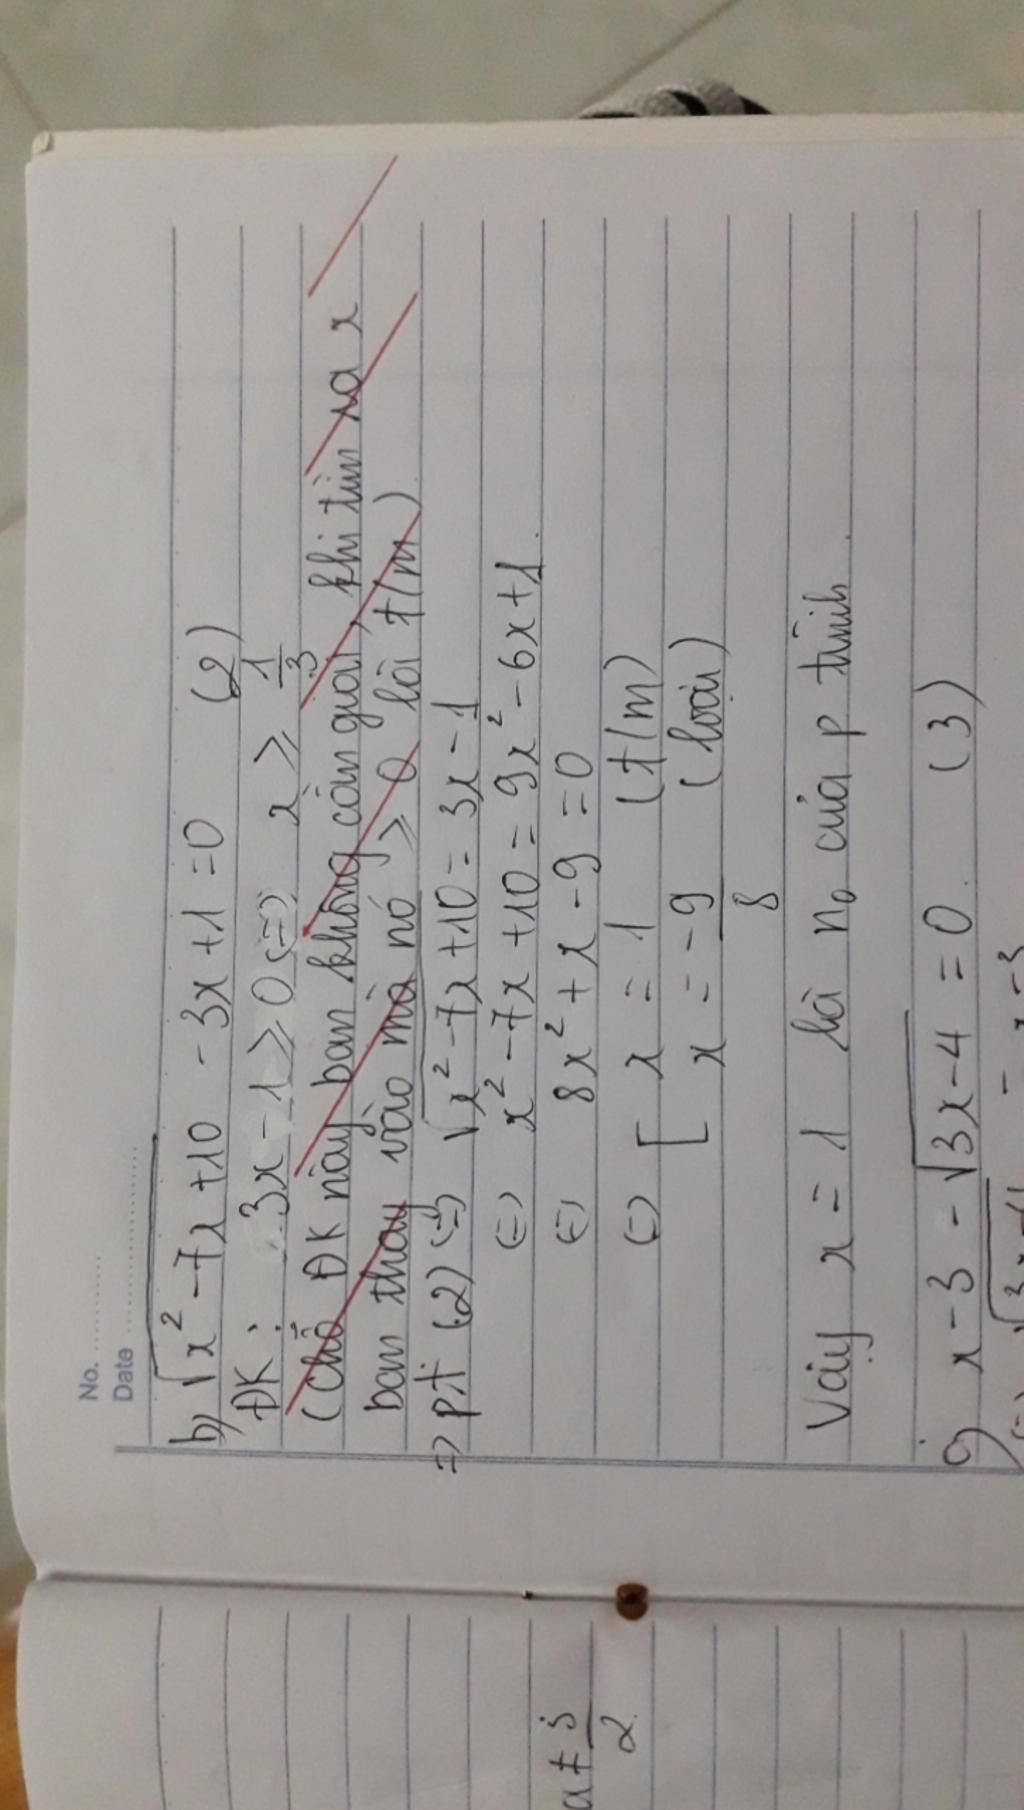 No. ..............
Date ..............
b) √x² - 7x + 10 - 3x + 1 = 0 (2)
ĐK: 3x - 1 ≥ 0 (=) x ≥ 1/3
(Chỗ ĐK này bạn không cần giải, khi tìm ra x
bạn thay vào mà nó ≥ 0 lài t/m)
=> pt (2) (=) √x² - 7x + 10 = 3x - 1
(=) x² - 7x + 10 = 9x² - 6x + 1.
(=) 8x² + x - 9 = 0
(=) [ x = 1 (t/m)
[ x = -9/8 (loại)
Vậy x = 1 là n₀ của p trình.
c) x - 3 - √3x - 4 = 0. (3)
at 3/2